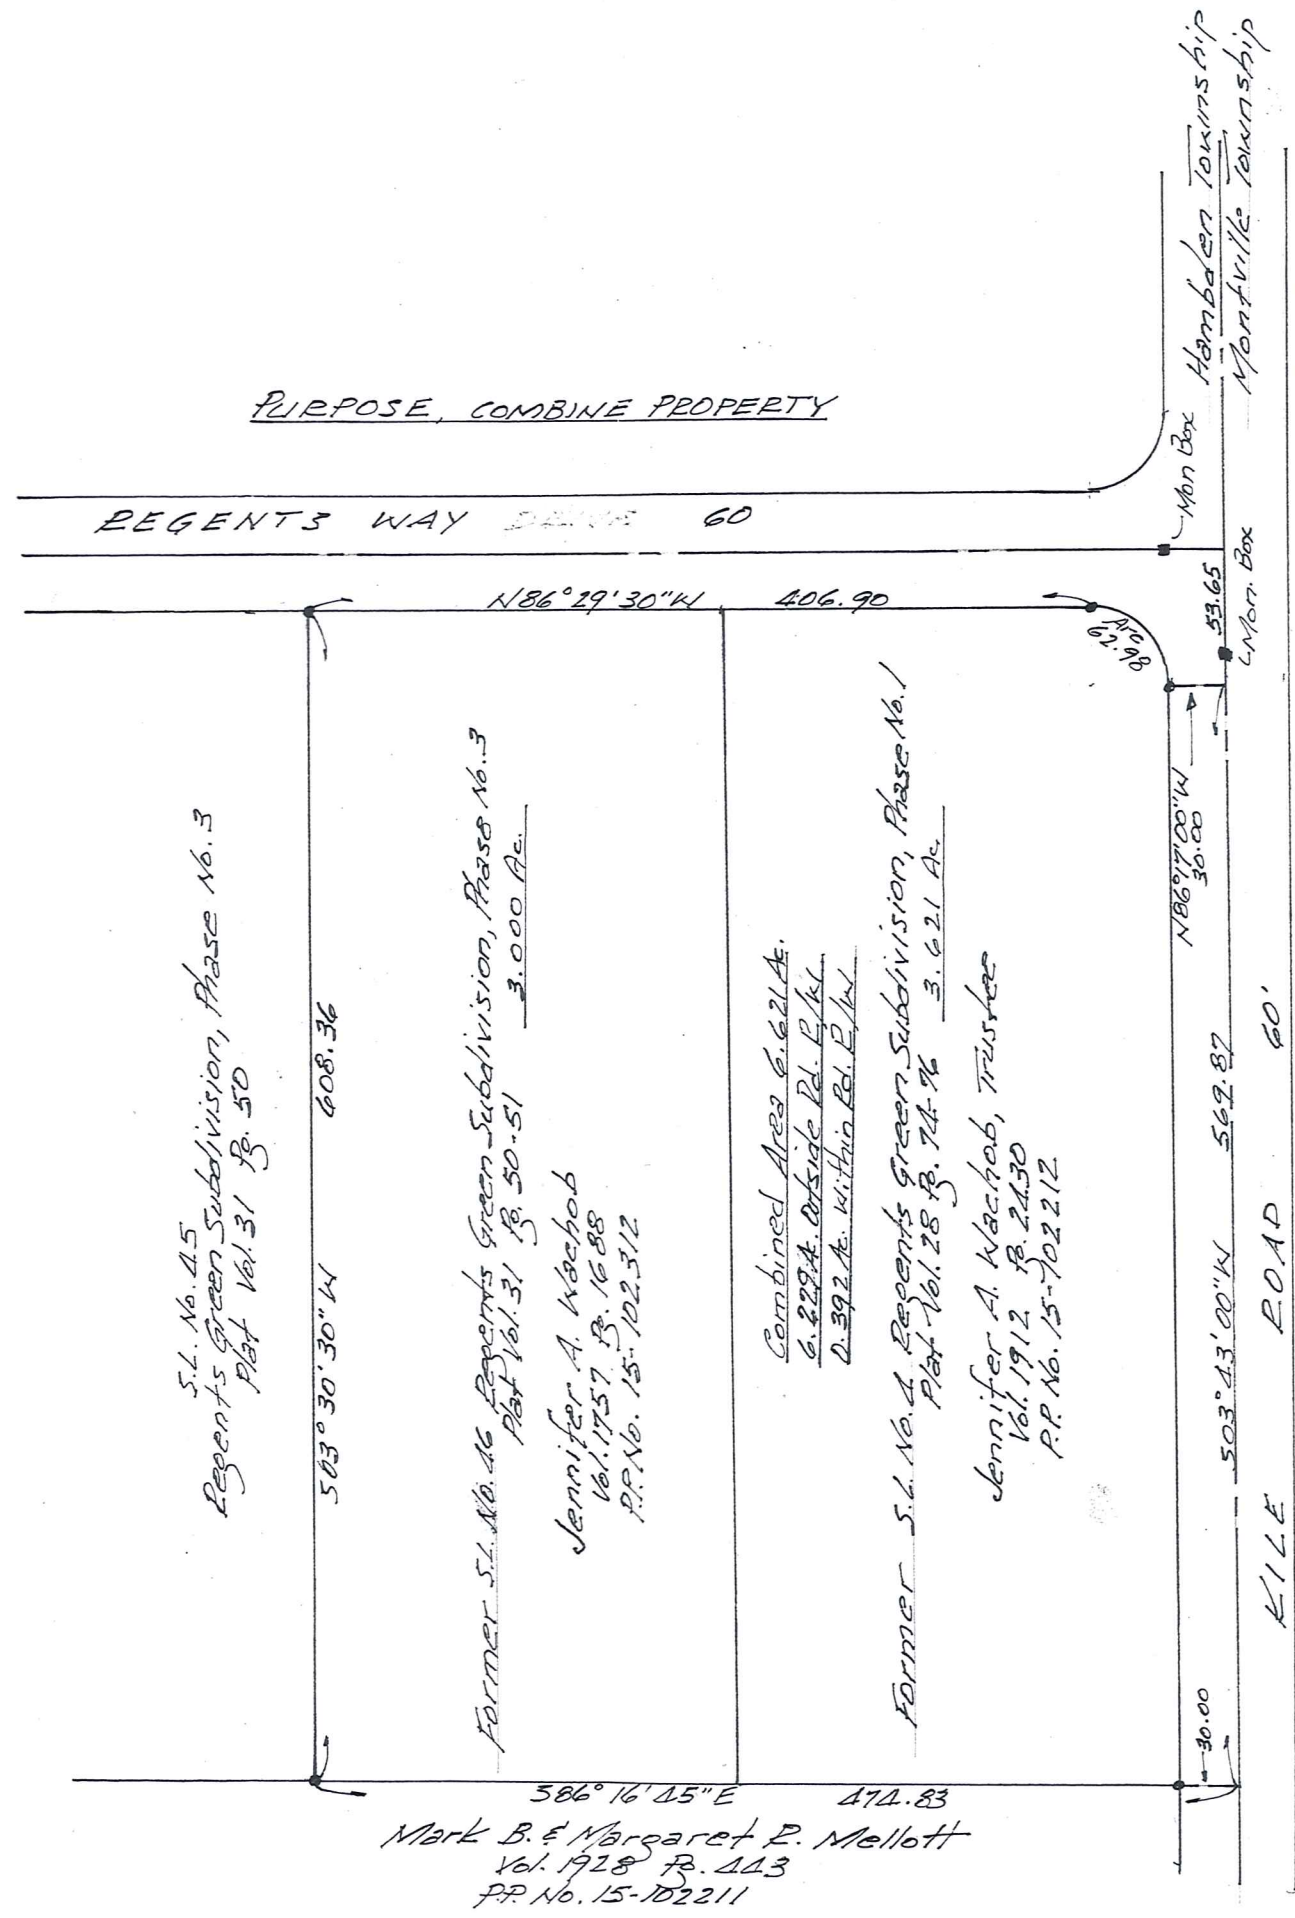 PURPOSE, COMBINE PROPERTY
Hambden Township
Montville Township
Mon Box
REGENTS WAY DRIVE 60
53.65
Mon. Box
N86°29'30"W 406.90
Arc
62.98
N86°17'00"W
30.00
S.L. No. 45
Regents Green Subdivision, Phase No. 3
Plat Vol. 31 Pg. 50
S03°30'30"W 608.36
Former S.L. No. 46 Regents Green Subdivision, Phase No. 3
Plat Vol. 31 Pg. 50-51 3.000 Ac.
Jennifer A. Wachob
Vol. 1757 Pg. 1688
P.P. No. 15-102312
Combined Area 6.621 Ac.
6.229 Ac. Outside Rd. R/W
0.392 Ac. Within Rd. R/W
Former S.L. No. 4 Regents Green Subdivision, Phase No. 1
Plat Vol. 28 Pg. 74-76 3.621 Ac.
Jennifer A. Wachob, Trustee
Vol. 1912 Pg. 2430
P.P. No. 15-102212
S03°43'00"W 569.87
KILE ROAD 60'
30.00
S86°16'45"E 474.83
Mark B. & Margaret R. Mellott
Vol. 1928 Pg. 443
P.P. No. 15-102211